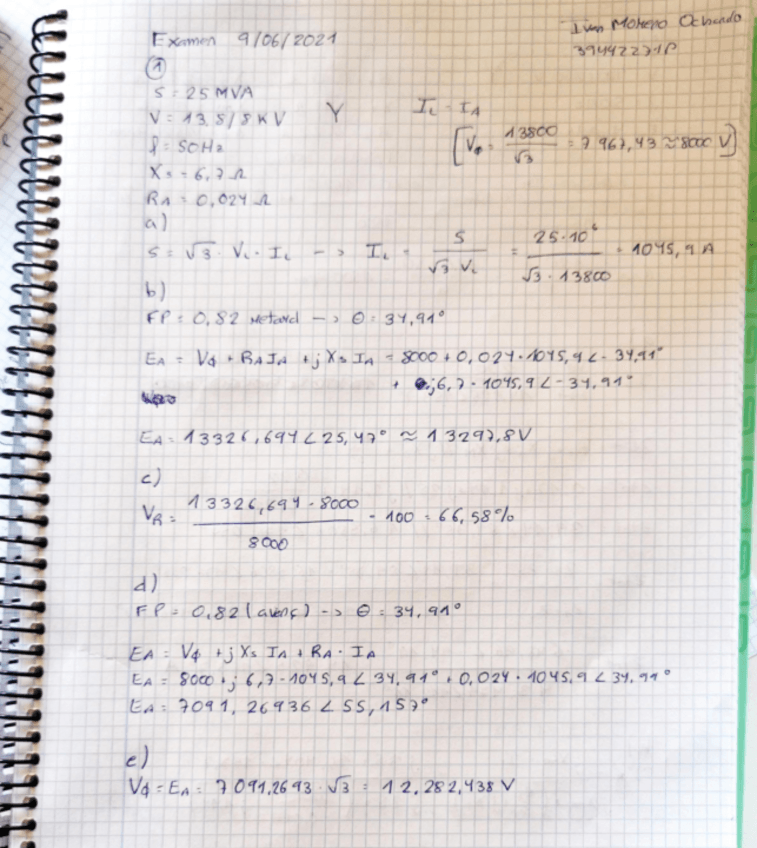 Examen 9/06/2021
①
S = 25 MVA
V = 13,8/8 KV Y IL = IA
[Vφ = 13800/√3 = 7967,43 ≈ 8000 V]
f = 50Hz
Xs = 6,7 Ω
RA = 0,024 Ω
a)
S = √3 · VL · IL -> IL = S/(√3 VL) = 25·10⁶/(√3 · 13800) = 1045,9 A
b)
FP = 0,82 retard -> θ = 34,91°
EA = Vφ + RA IA + j Xs IA = 8000 + 0,024·1045,9 ∠-34,91°
+ j6,7·1045,9 ∠-34,91°
EA = 13326,694 ∠25,47° ≈ 13297,8V
c)
VR = (13326,694 - 8000)/8000 · 100 = 66,58%
d)
FP = 0,82 (avenç) -> θ = 34,91°
EA = Vφ + j Xs IA + RA · IA
EA = 8000 + j 6,7·1045,9 ∠34,91° + 0,024·1045,9 ∠34,91°
EA = 7091,26936 ∠55,157°
e)
Vφ = EA = 7091,2693 · √3 = 12.282,438 V